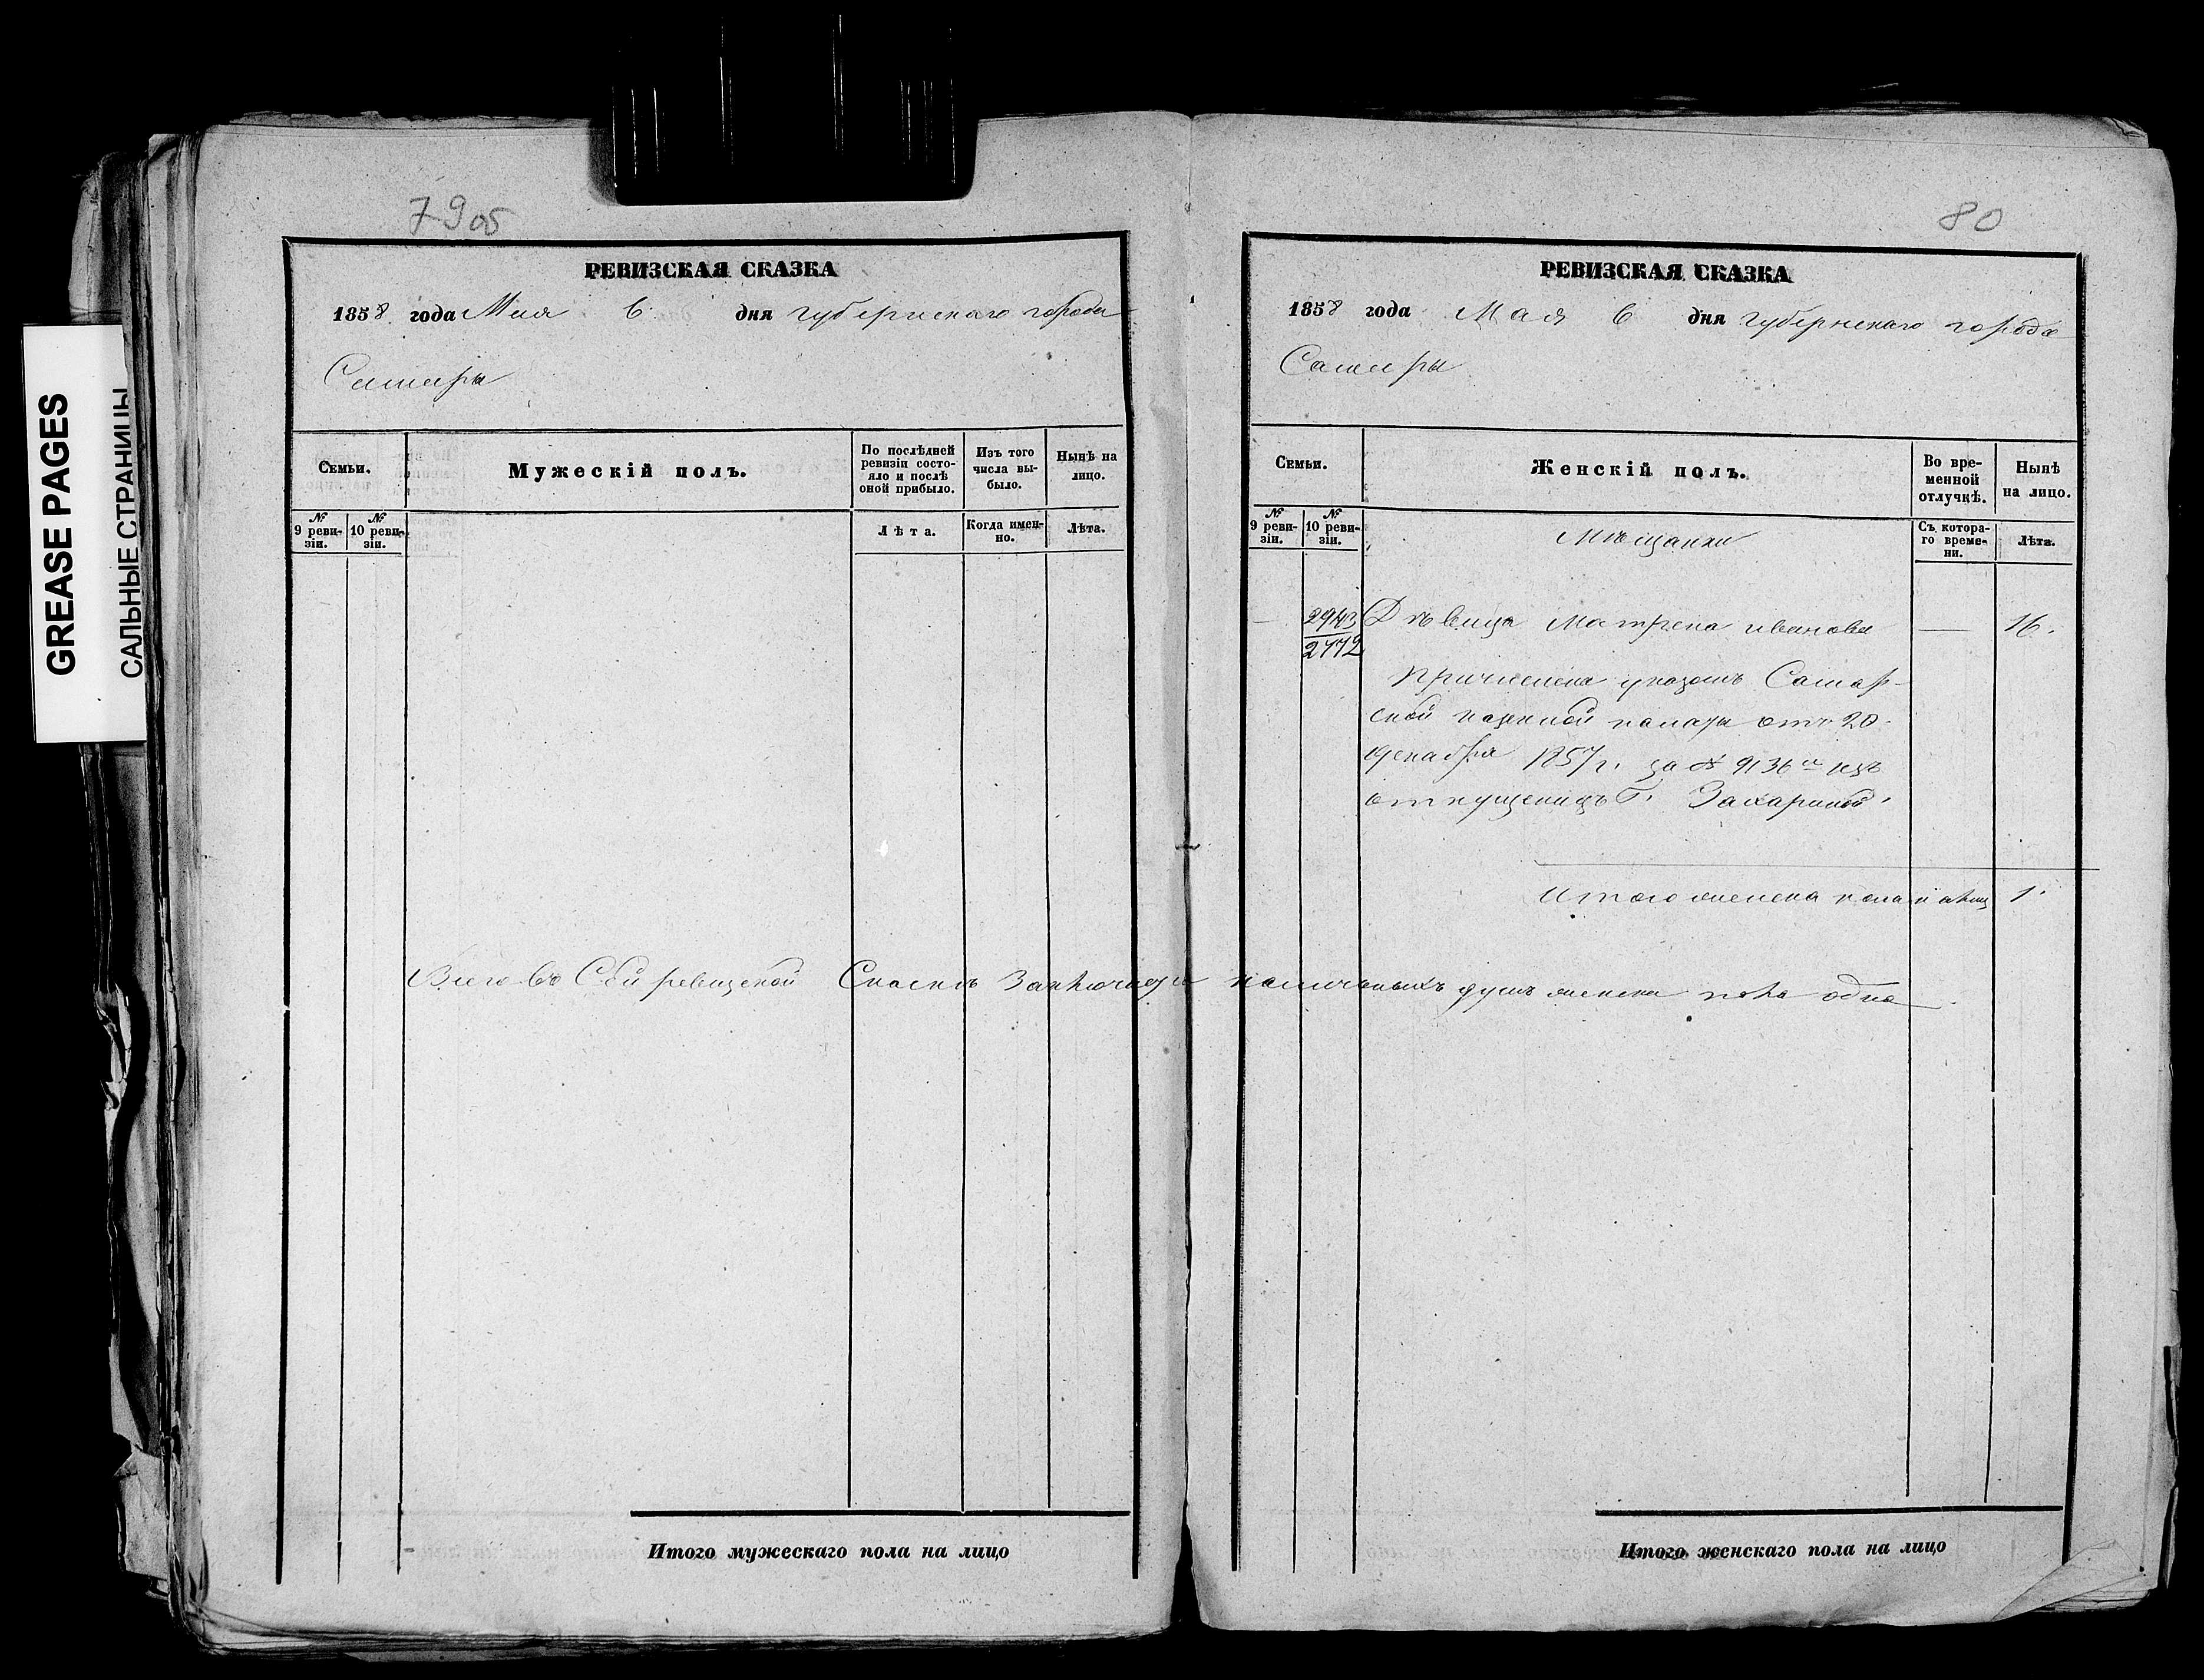 GREASE PAGES
САЛЬНЫЕ СТРАНИЦЫ
79об
РЕВИЗСКАЯ СКАЗКА
1858 года Мая 6 дня губернскаго города
Самары
Семьи.
Мужескій полъ.
По послѣдней ревизіи состо-
яло и послѣ оной прибыло.
Изъ того числа вы-
было.
Нынѣ на лицо.
№ 9 реви-
зіи.
№ 10 реви-
зіи.
Лѣта.
Когда имен-
но.
Лѣта.
Всего въ Сей ревизской Сказкѣ Заключается наличныхъ душъ женска пола одна
Итого мужескаго пола на лицо
80
РЕВИЗСКАЯ СКАЗКА
1858 года Мая 6 дня губернскаго города
Самары
Семьи.
Женскій полъ.
Во вре-
менной
отлучкѣ.
Нынѣ
на лицо.
№ 9 реви-
зіи.
№ 10 реви-
зіи.
Мѣщанки
Съ котора-
го време-
ни.
Лѣта.
— 2943 Дѣвица Матрена иванова — 16.
2772
Причислена указомъ Самар-
ской казенной палаты отъ 20
декабря 1857 г. за № 9136 изъ
отпущеницъ Г. Захариной.
Итого женска пола на лиц 1.
Итого женскаго пола на лицо